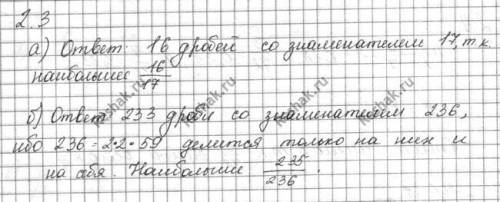 2.3
а) Ответ: 16 дробей со знаменателем 17, т.к.
наибольшее 16/17
б) Ответ: 233 дроби со знаменателем 236,
ибо 236 = 2·2·59 делится только на них и
на себя. Наибольшее 235/236.